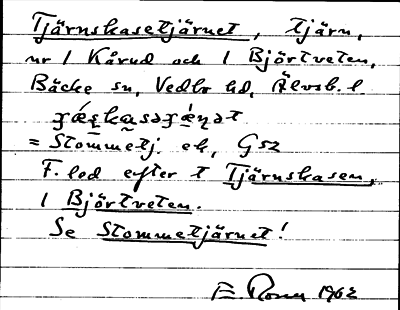 Tjärnskasetjärnet, tjärn,
nr 1 Kårud och 1 Björtveten,
Bäcke sn, Vedbo hd, Älvsb. l
= Stommetj. ek, GSZ
F. led efter t Tjärnskasen,
1 Björtveten.
Se Stommetjärnet!
1962